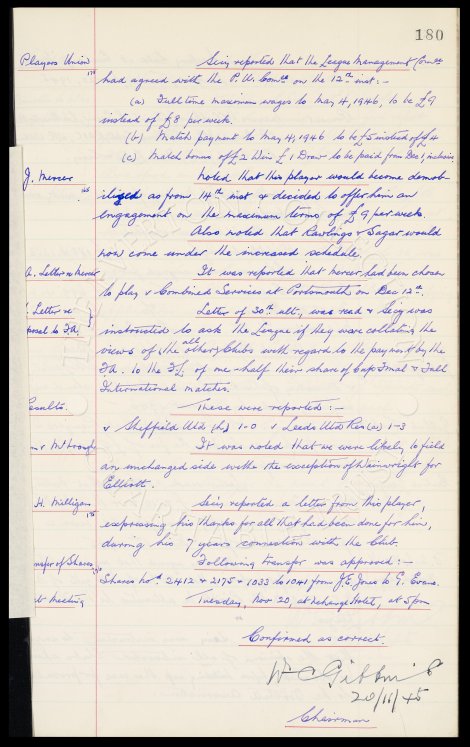 180
Players Union Secy reported that the League Management Comee
had agreed with the P.U. Comee on the 12th inst :-
(a) Full time maximum wages to May 4, 1946, to be £9
instead of £8 per week.
(b) Match payment to May 4, 1946 to be £5 instead of £4
(c) Match bonus of £2 Win £1 Draw to be paid from Dec 1, inclusive
J. Mercer Noted that this player would become demob-
ilized as from 14th inst & decided to offer him an
engagement on the maximum terms of £9 per week.
Also noted that Rawlings & Sagar would
now come under the increased schedule.
A. Letter re Mercer It was reported that Mercer had been chosen
to play v Combined Services at Portsmouth on Dec 12th.
Letter re Letter of 30th ult., was read & Secy was
posal to F.A. instructed to ask the League if they were collating the
views of the all other Clubs with regard to the payment by the
F.A. to the F.L. of one-half their share of Cup Final & Full
International matches.
esults. These were reported :-
v Sheffield Utd (h) 1-0 v Leeds Utd Res (a) 1-3
It was noted that we were likely to field
an unchanged side with the exception of Wainwright for
Elliott.
H. Milligan Secy reported a letter from this player,
expressing his thanks for all that had been done for him,
during his 7 years connection with the Club.
nsfer of Shares Following transfer was approved :-
Shares Nos 2412 & 2175 & 1033 to 1041 from J.E. Jones to G. Evans.
t Meeting Tuesday, Nov 20, at Exchange Hotel, at 5pm
Confirmed as correct.
W C Gibbins
20/11/45
Chairman